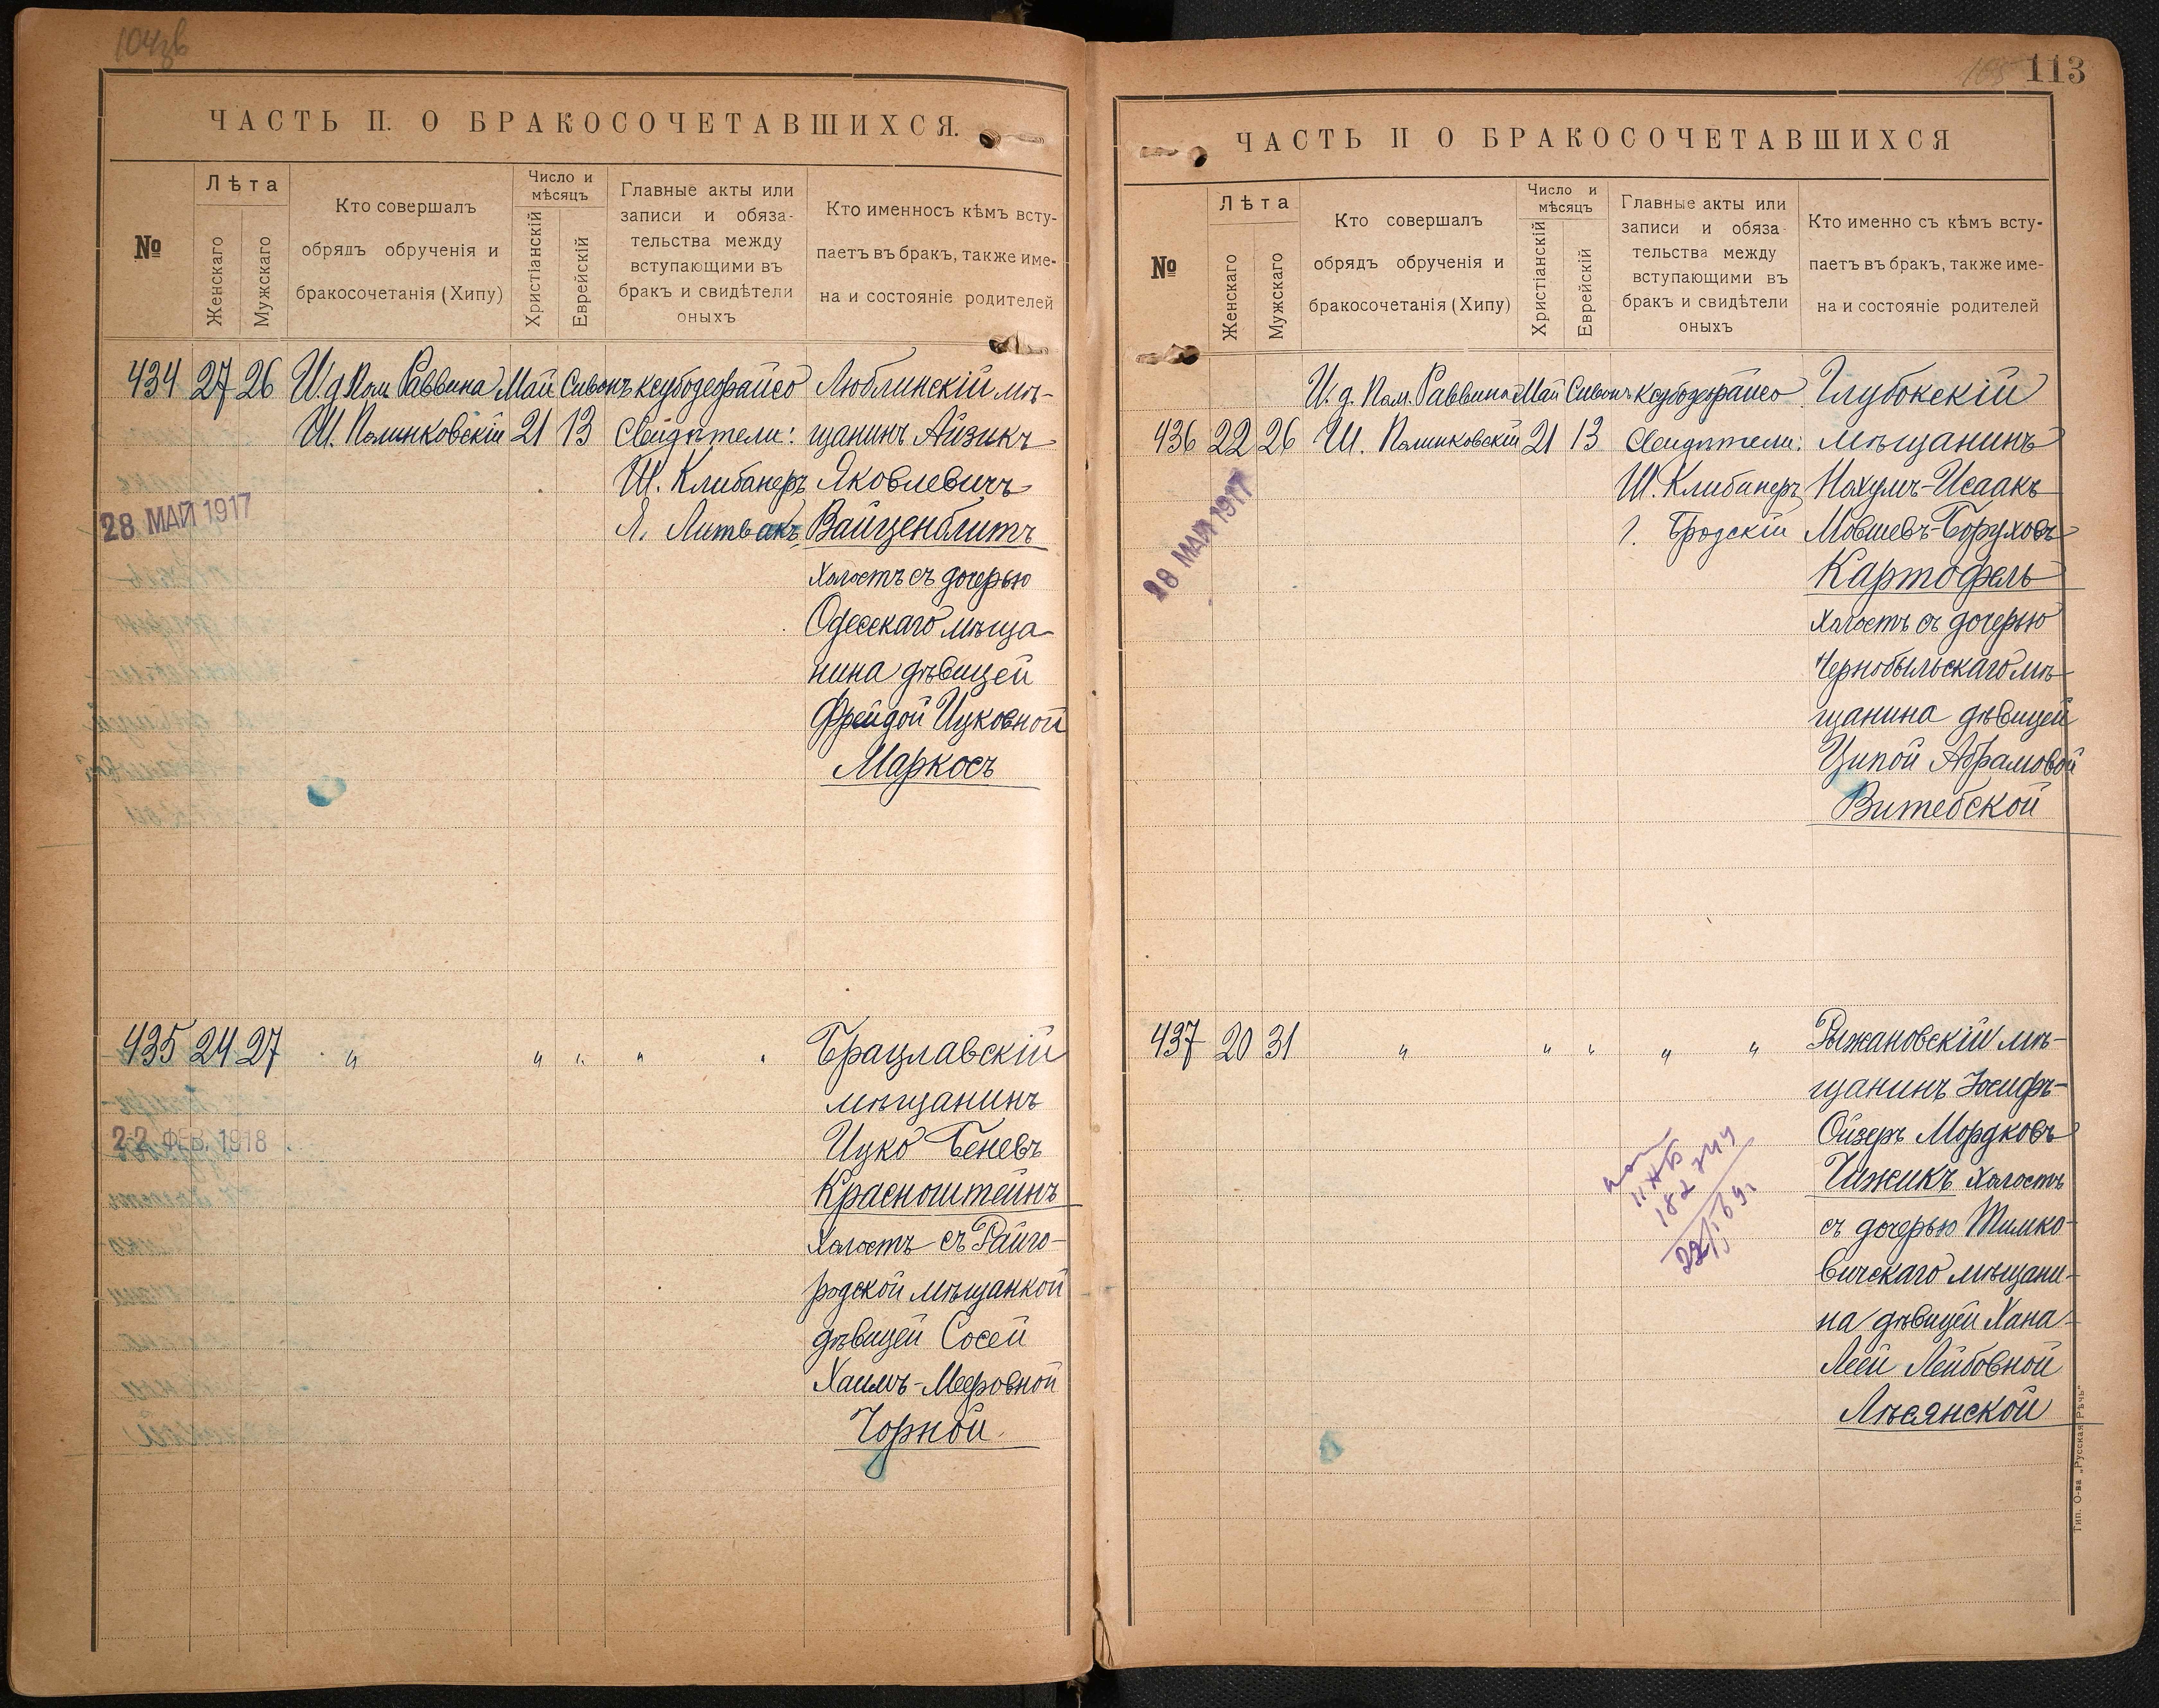 113
ЧАСТЬ II. О БРАКОСОЧЕТАВШИХСЯ.
№
Лѣта
Женскаго
Мужскаго
Кто совершалъ
обрядъ обрученія и
бракосочетанія (Хипу)
Число и
мѣсяцъ
Христіанскій
Еврейскій
Главные акты или
записи и обяза-
тельства между
вступающими въ
бракъ и свидѣтели
оныхъ
Кто именносъ кѣмъ всту-
паетъ въ бракъ, также име-
на и состояніе родителей
434 27 26 И.д. Пом. Раввина Май Сивонъ ксубодеорайсо Люблинскій мѣ-
Ш. Полинковскій 21 13 Свидѣтели: щанинъ Айзикъ
Ш. Клибанеръ Яковлевичъ
Я. Литвакъ Вайценблитъ
28 МАЙ 1917
холостъ съ дочерью
Одесскаго мѣща-
нина дѣвицей
Фрейдой Ицковной
Маркосъ
435 24 27 " " " " " Брацлавскій
мѣщанинъ
22 ФЕВ. 1918
Ицко Беневъ
Красноштейнъ
холостъ съ Райго-
родской мѣщанкой
дѣвицей Сосей
Хаимъ-Мееровной
Чорной
ЧАСТЬ II О БРАКОСОЧЕТАВШИХСЯ
№
Лѣта
Женскаго
Мужскаго
Кто совершалъ
обрядъ обрученія и
бракосочетанія (Хипу)
Число и
мѣсяцъ
Христіанскій
Еврейскій
Главные акты или
записи и обяза-
тельства между
вступающими въ
бракъ и свидѣтели
оныхъ
Кто именно съ кѣмъ всту-
паетъ въ бракъ, также име-
на и состояніе родителей
И. д. Пом. Раввина Май Сивонъ ксубодеорайсо Глубокскій
436 22 26 Ш. Полинковскій 21 13 Свидѣтели: мѣщанинъ
Ш. Клибанеръ Нохумъ-Исаакъ
Бродскій Мовшевъ-Боруховъ
28 МАЙ 1917
Картофель
холостъ съ дочерью
Чернобыльскаго мѣ-
щанина дѣвицей
Ципой Абрамовой
Витебской
437 20 31 " " " " " Рыжановскій мѣ-
щанинъ Іосифъ-
Ойзеръ Мордковъ
Чижикъ холостъ
съ дочерью Тимко-
вичскаго мѣщани-
на дѣвицей Хана-
Леей Лейбовной
Лѣсянской
Тип. О-ва „Русская Рѣчь"